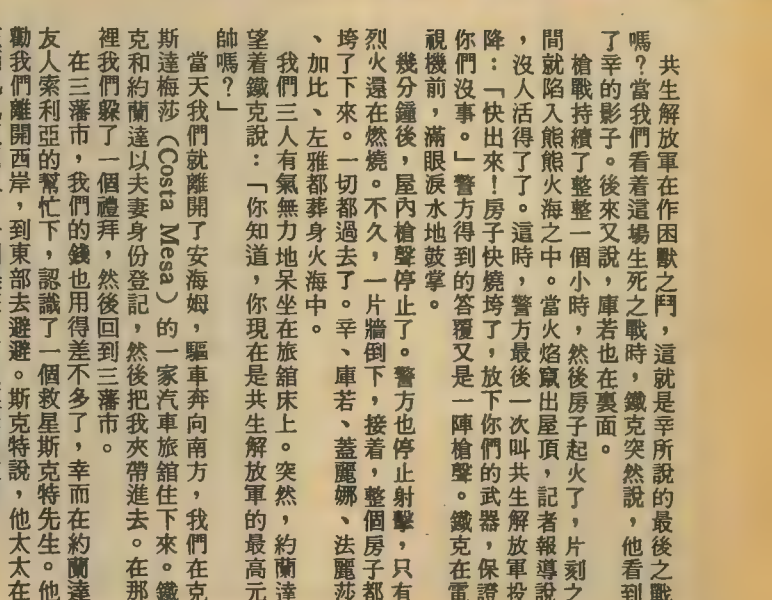 共生解放軍在作困獸之鬥,這就是辛所說的最後之戰
嗎?當我們看着這場生死之戰時,鐵克突然說,他看到
了辛的影子。後來又說,庫若也在裏面。
槍戰持續了整整一個小時,然後房子起火了,片刻之
間就陷入熊熊火海之中。當火焰竄出屋頂,記者報導說
,沒人活得了了。這時,警方最後一次叫共生解放軍投
降:「快出來!房子快燒垮了,放下你們的武器,保證
你們沒事。」警方得到的答覆又是一陣槍聲。鐵克在電
視機前,滿眼淚水地鼓掌。
幾分鐘後,屋內槍聲停止了。警方也停止射擊,只有
烈火還在燃燒。不久,一片牆倒下,接着,整個房子都
垮了下來。一切都過去了。辛、庫若、蓋麗娜、法麗莎
、加比、左雅都葬身火海中。
我們三人有氣無力地呆坐在旅舘床上。突然,約蘭達
望着鐵克說:「你知道,你現在是共生解放軍的最高元
帥嗎?」
當天我們就離開了安海姆,驅車奔向南方,我們在克
斯達梅莎(Costa Mesa)的一家汽車旅舘住下來。鐵
克和約蘭達以夫妻身份登記,然後把我夾帶進去。在那
裡我們躲了一個禮拜,然後回到三藩市。
在三藩市,我們的錢也用得差不多了,幸而在約蘭達
友人索利亞的幫忙下,認識了一個救星斯克特先生。他
勸我們離開西岸,到東部去避避。斯克特說,他太太在